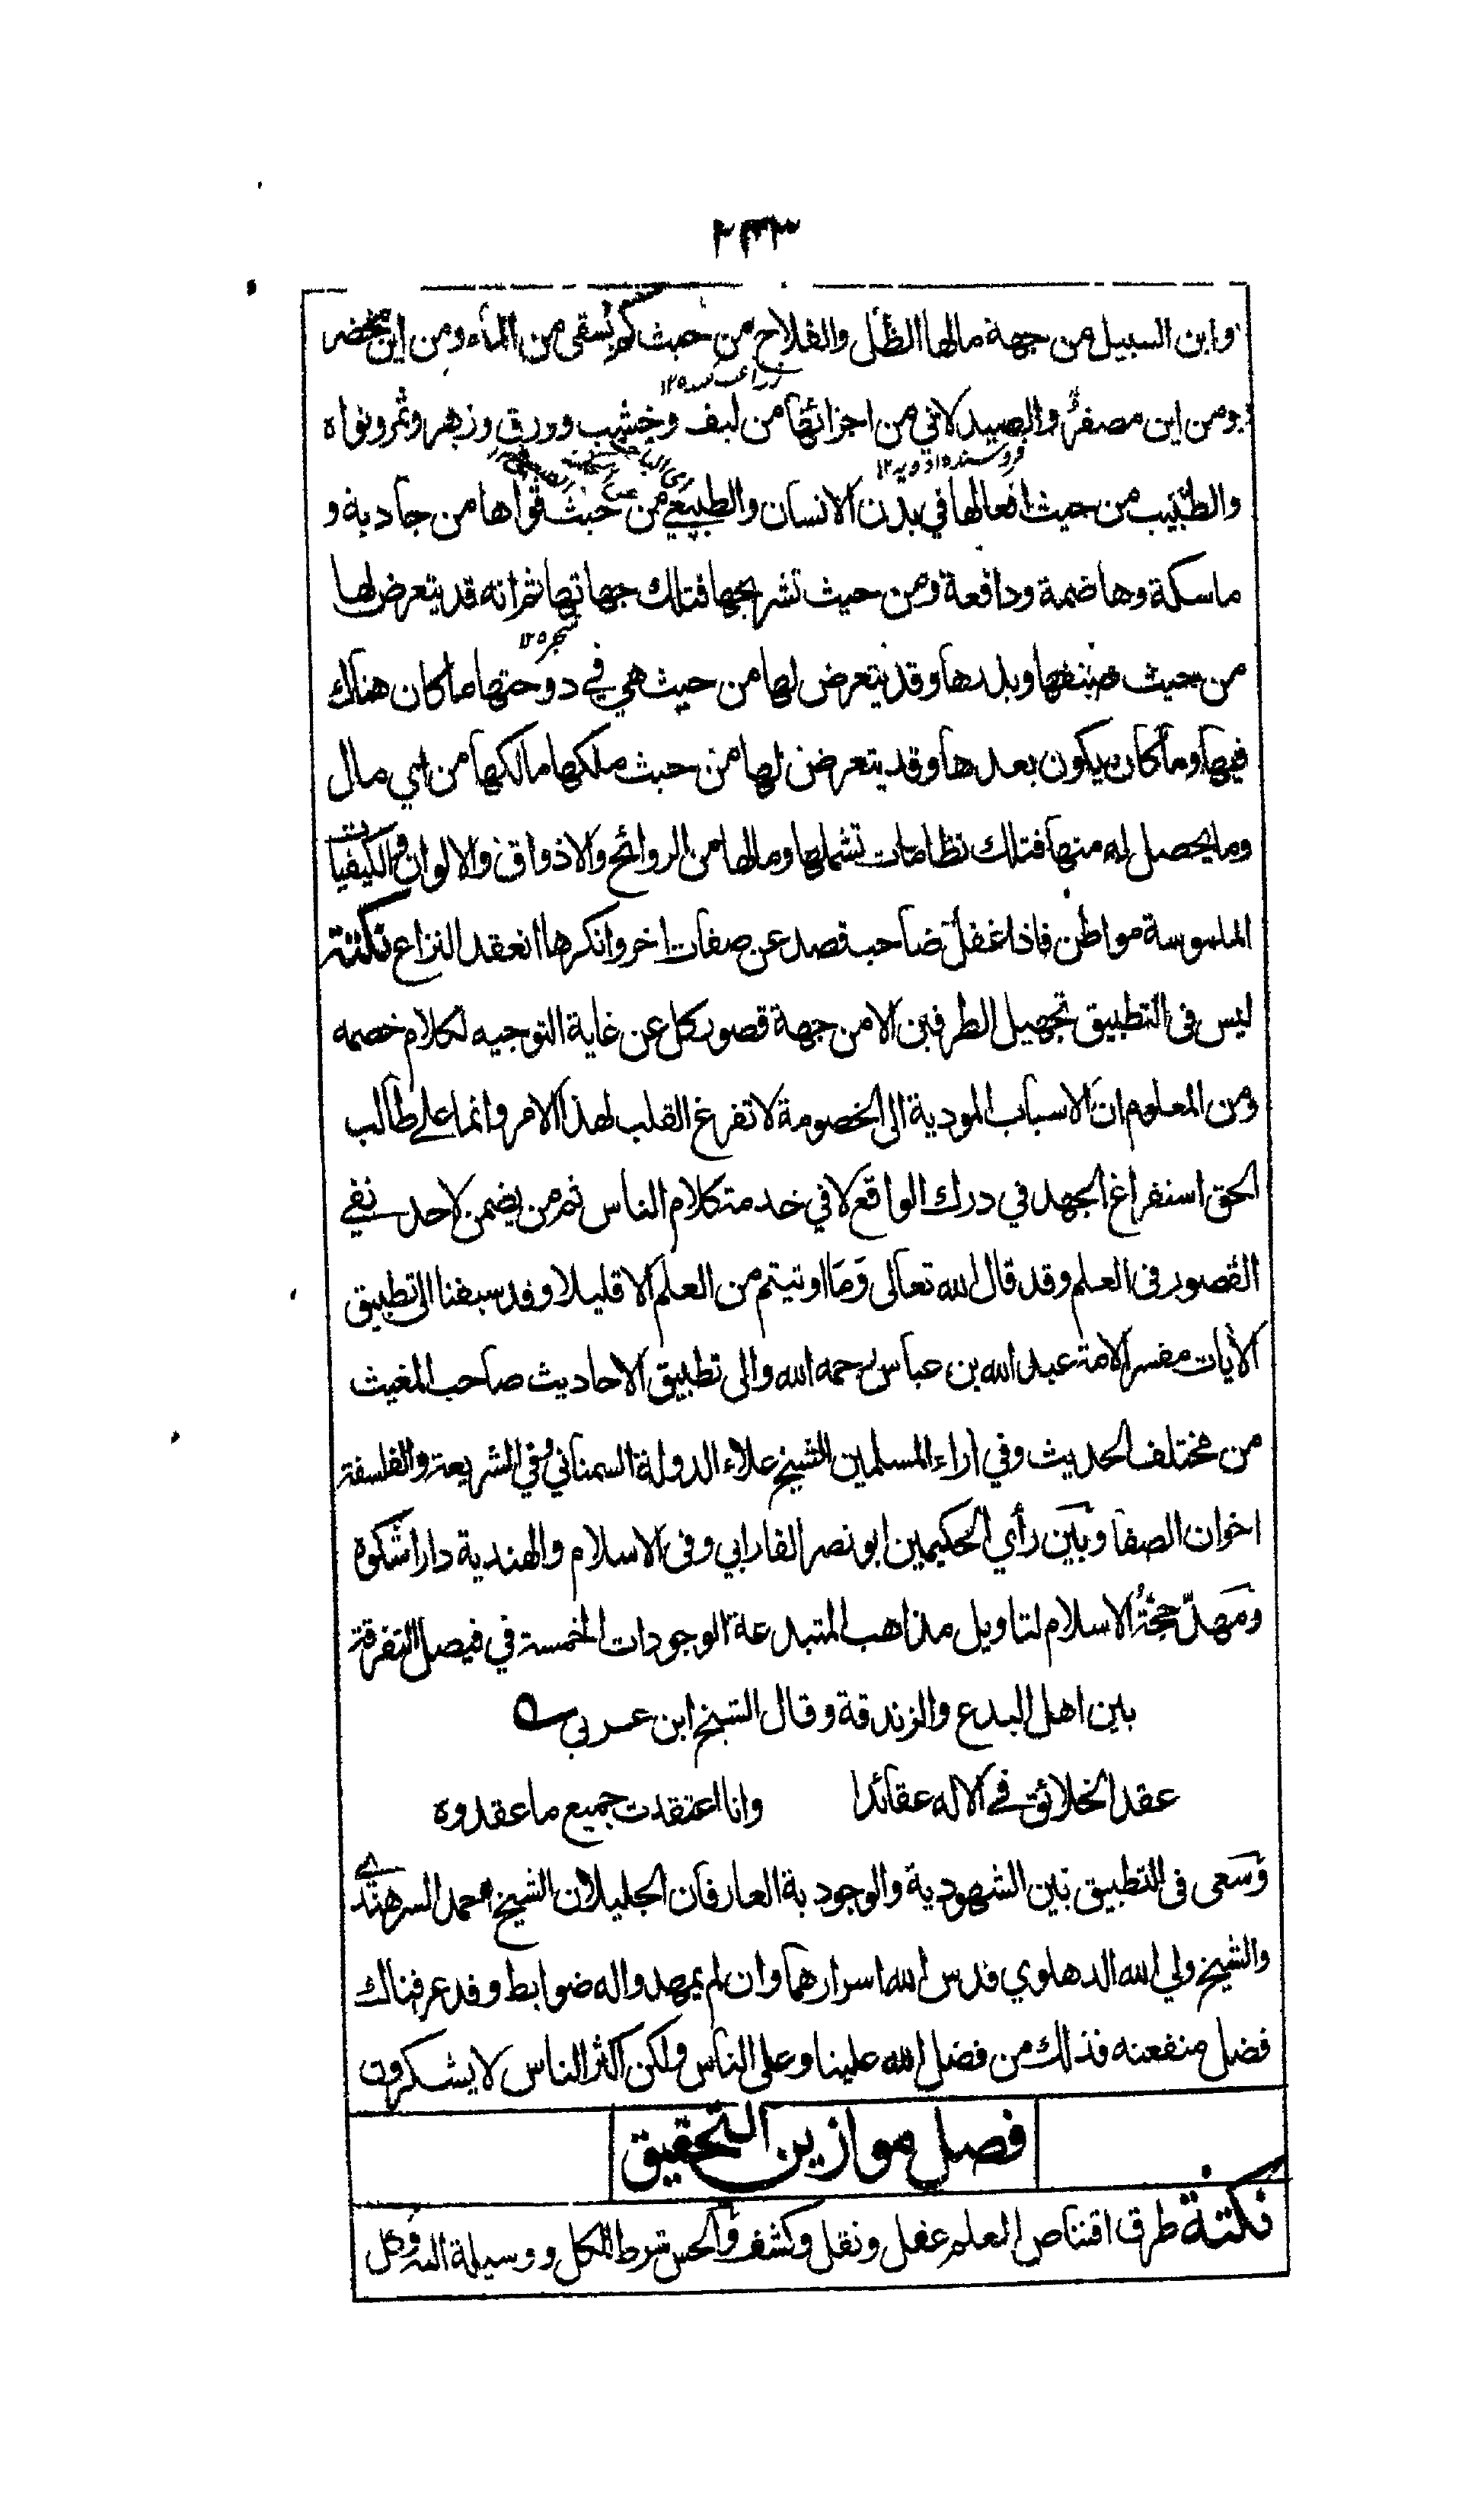 وابن السبيل من جهة مالها الظل والفلاح من حيث كم يسقى من الماء ومن اين تخضر
زراعت كننده ١٢
ومن اين مصفر والصيدلاني من اجزائها من ليف وخشب وورق وزهر وثمر ونواه
فروشنده ادويه ١٢
والطبيب من حيث افعالها في بدن الانسان والطبيعي من حيث قواها من جاذبة و
ماسكة وهاضمة ودافعة ومن حيث تشريحها فتلك جهاتها ثم انه قد يتعرض لها
شجره ١٢
من حيث صنفها وبلدها وقد يتعرض لها من حيث هي في دوحتها ما كان هناك
فيها وما كان ويكون بعدها وقد يتعرض لها من حيث ملكها مالكها من اي مال
وما يحصل له منها فتلك نظامات تشملها ومالها من الروائح والاذواق والالوان والكيفيات
الملموسة مواطن فاذا غفل صاحب قصد عن صفات اخر وانكرها انعقد النزاع نكتة
ليس فى التطبيق تجهيل الطرفين الا من جهة قصور كل عن غاية التوجيه لكلام خصمه
ومن المعلوم ان الاسباب المودية الى الخصومة لا تفرغ القلب لهذا الامر وانما على طالب
الحق استفراغ الجهد في درك الواقع لا في خدمة كلام الناس ثم من يضمن لاحد نفي
القصور فى العلم وقد قال الله تعالى وَمَا اوتيتم من العلم الا قليلا وقد سبقنا الى تطبيق
الأيات مفسر الامة عبد الله بن عباس رحمه الله والى تطبيق الاحاديث صاحب المغيث
من مختلف الحديث وفي اراء المسلمين الشيخ علاء الدولة السمناني وفي الشريعة والفلسفة
اخوان الصفا وبَين رأي الحكيمين ابو نصر الفارابي وفى الاسلام والهندية دارا شكوه
ومَهدّ حجّةُ الاسلام لتاويل مذاهب المتبدعة الوجودات الخمسة في فيصل التفرقة
بين اهل البدع والزندقة وقال الشيخ ابن عربي
عقد الخلائق في الاله عقائدا وانا اعتقدت جميع ما عقدوه
وسَعى فى التطبيق بَين الشهودية والوجودية العارفان الجليلان الشيخ احمد السرهندي
والشيخ ولي الله الدهلوي قدس الله اسرارهما وان لم يمهدوا له ضوابط وقد عرفناك
فضل منفعته فذلك من فضل الله علينا وعلى الناس ولكن اكثر الناس لا يشكرون
فصل موازين التحقيق
نكتة طرق اقتناص العلم عقل ونقل وكشف والحس شرط الكل ووسيلة اليه وكل